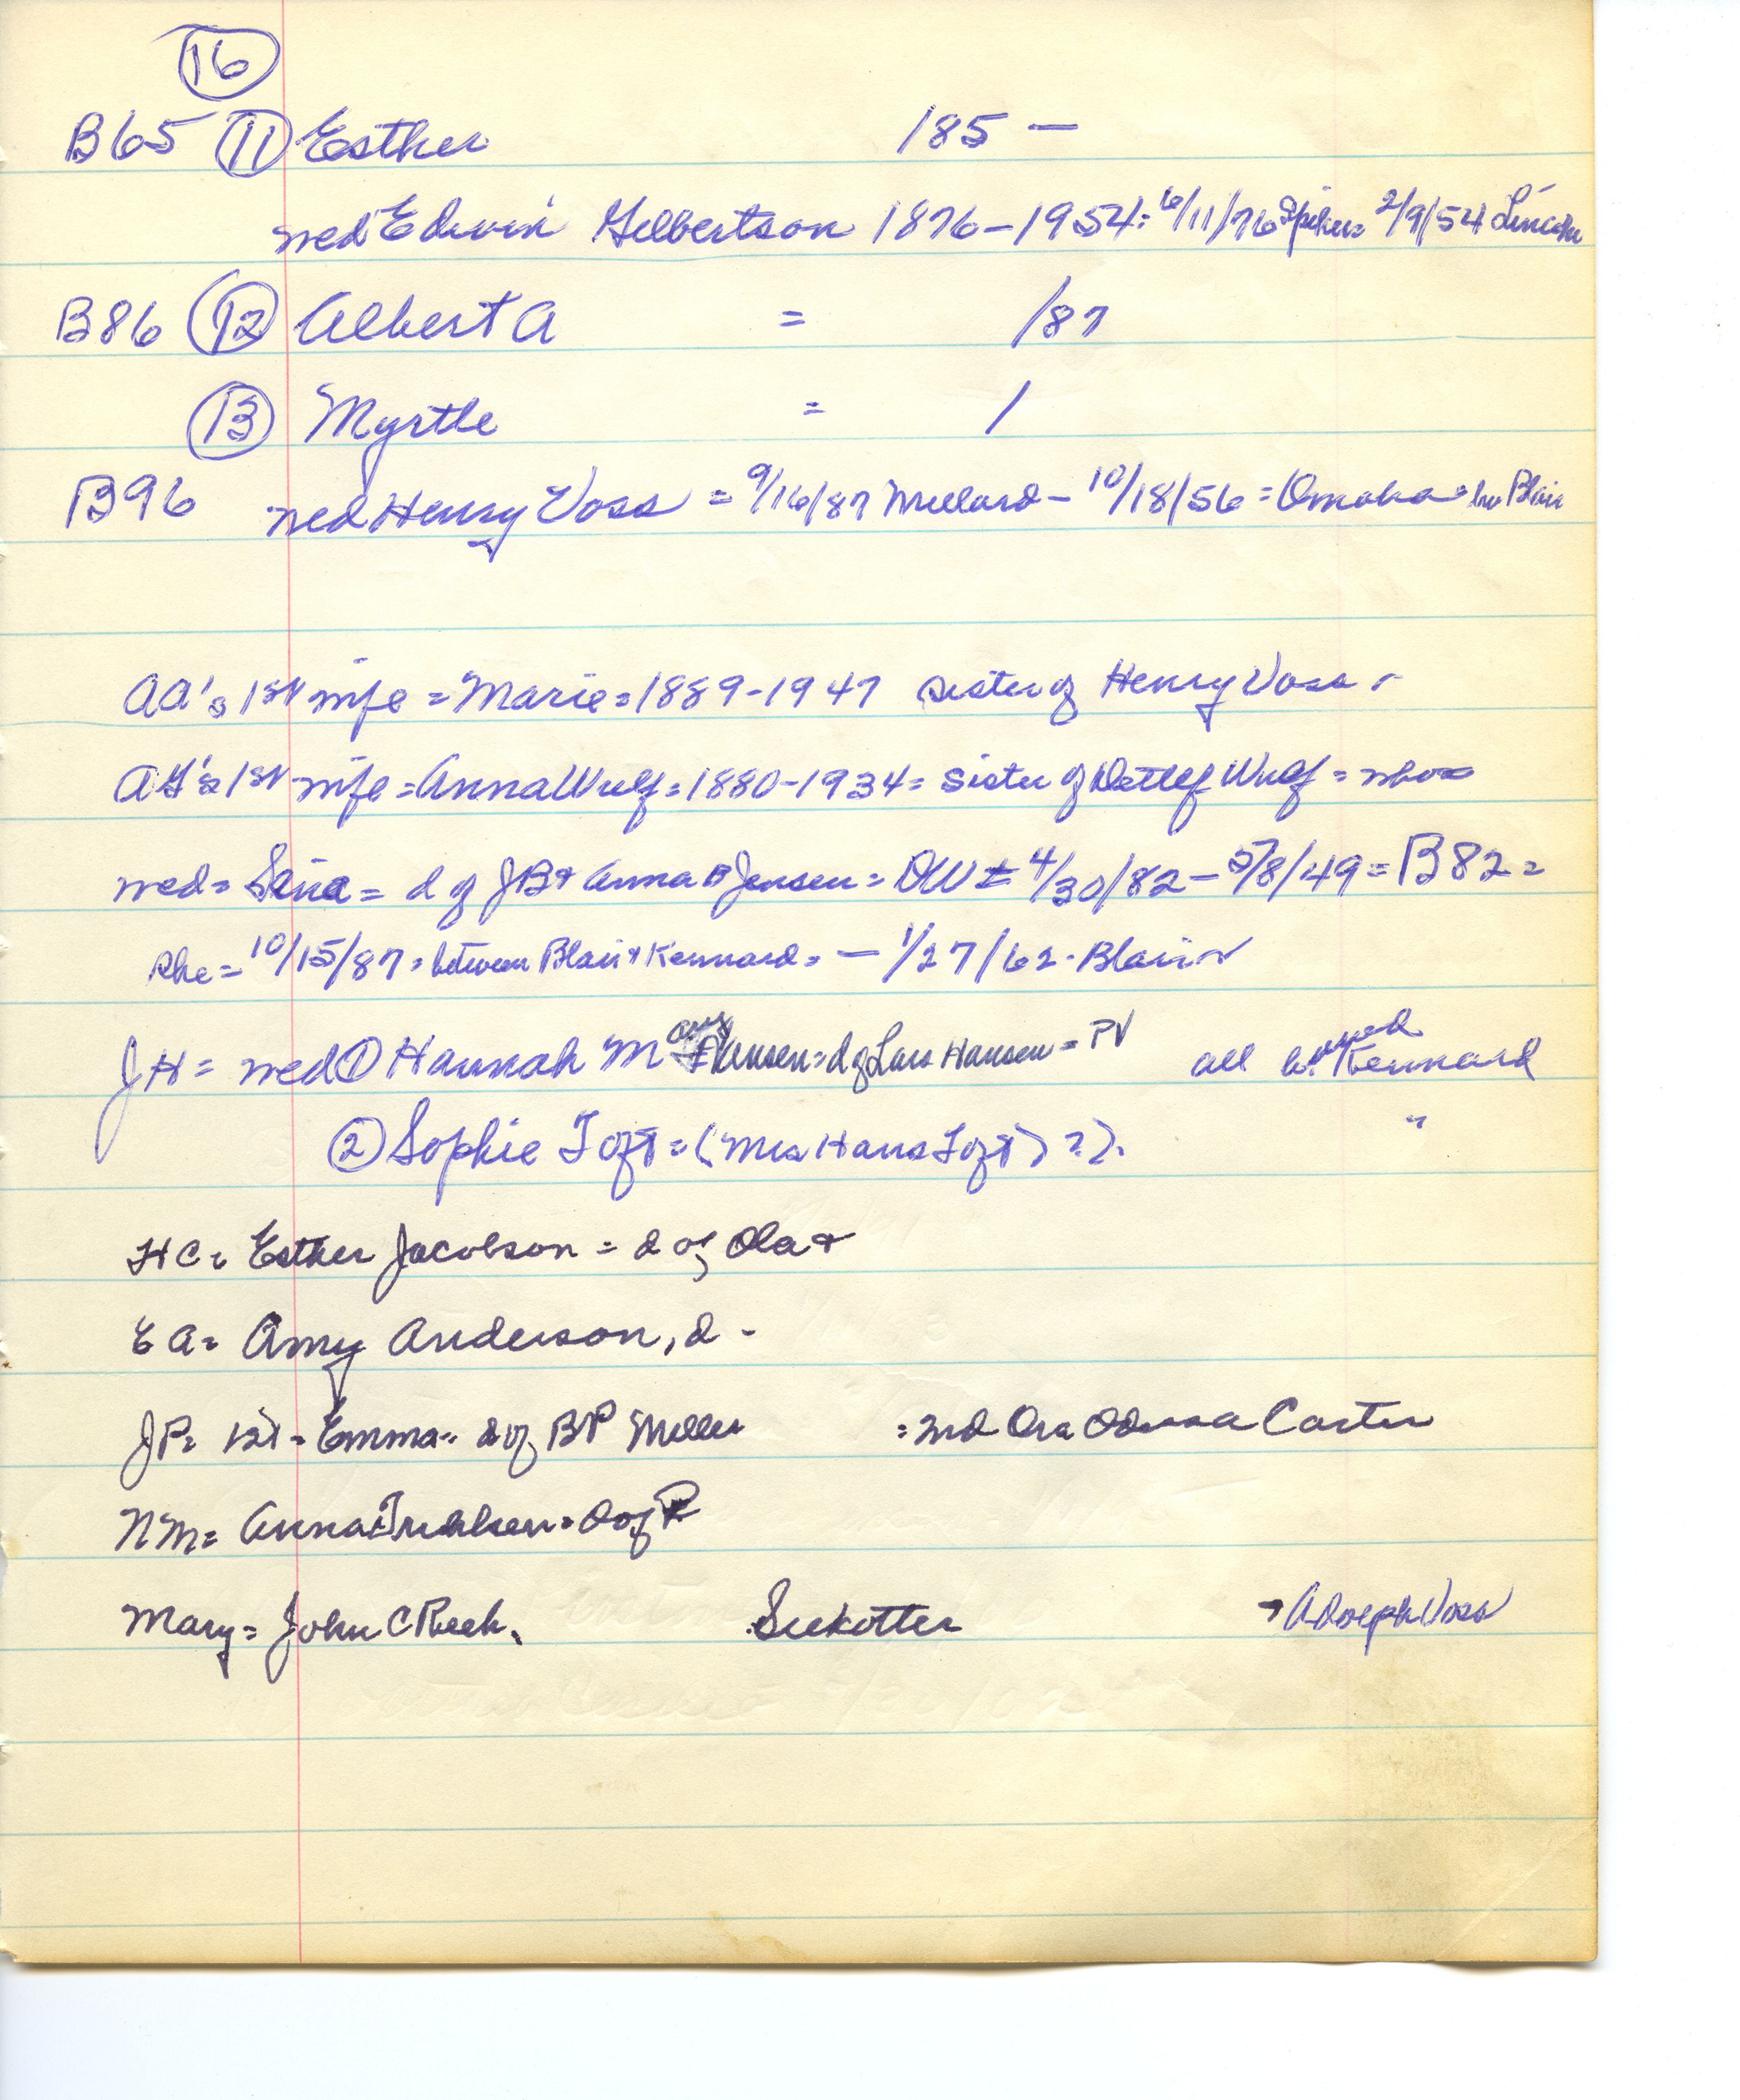 16
B65 11 Esther 185 —
wed Edwin Gilbertson 1876-1954: 6/11/76 2/9/54 Lincoln
B86 12 Albert A = /87
13 Myrtle = /
B96 wed Henry Voss = 9/16/87 Millard - 10/18/56 = Omaha = Blair
AA's 1st wife = Marie = 1889-1947 sister of Henry Voss
1st wife = Anna Wulf = 1880-1934 = sister of Detlef Wulf = who
wed = Sena = d of JB & Anna B Jensen = DW = 4/30/82 - 5/8/49 = B82 =
She = 10/15/87 = between Blair & Kennard = - 1/27/62 - Blair
JH = wed 1 Hannah Hansen = d of Lars Hansen = PV all Kennard
2 Sophie Toft = (Mrs Hans Toft) ?). "
HC = Esther Jacobson = d of Ola &
EA = Amy Anderson, d -
JP = 1st = Emma = d of BP Miller = 2nd Ora Odessa Carter
NM = Anna d of P
Mary = John C Reeh. Seekotter